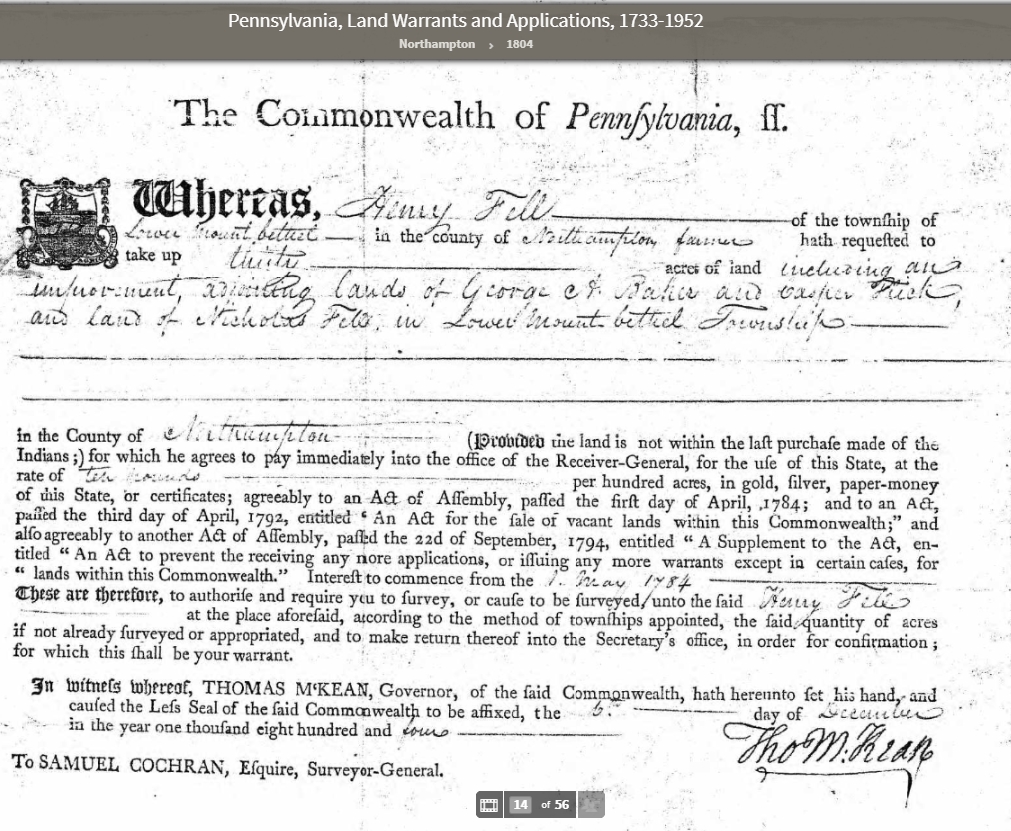 Pennsylvania, Land Warrants and Applications, 1733-1952
Northampton › 1804
The Commonwealth of Pennſylvania, ſſ.
Whereas, Henry Fell of the townſhip of
Lower Mount bethel in the county of Northampton farmer hath requeſted to
take up thirty acres of land including an
improvement, adjoining lands of George A. Baker and Casper Flick,
and land of Nicholas Fell, in Lower Mount bethel Township
in the County of Northampton (Provided the land is not within the laſt purchaſe made of the
Indians ;) for which he agrees to pay immediately into the office of the Receiver-General, for the uſe of this State, at the
rate of ten pounds per hundred acres, in gold, ſilver, paper-money
of this State, or certificates; agreeably to an Act of Aſſembly, paſſed the firſt day of April, 1784; and to an Act,
paſſed the third day of April, 1792, entitled ‘ An Act for the ſale of vacant lands within this Commonwealth;” and
alſo agreeably to another Act of Aſſembly, paſſed the 22d of September, 1794, entitled “ A Supplement to the Act, en-
titled “ An Act to prevent the receiving any more applications, or iſſuing any more warrants except in certain caſes, for
“ lands within this Commonwealth.” Intereſt to commence from the 1. May 1784
Theſe are therefore, to authoriſe and require you to ſurvey, or cauſe to be ſurveyed, unto the ſaid Henry Fell
at the place aforeſaid, according to the method of townſhips appointed, the ſaid quantity of acres
if not already ſurveyed or appropriated, and to make return thereof into the Secretary’s office, in order for confirmation ;
for which this ſhall be your warrant.
In witneſs whereof, THOMAS M‘KEAN, Governor, of the ſaid Commonwealth, hath hereunto ſet his hand, and
cauſed the Leſs Seal of the ſaid Commonwealth to be affixed, the 6th day of December
in the year one thouſand eight hundred and four
Tho M:Kean
To SAMUEL COCHRAN, Eſquire, Surveyor-General.
14 of 56